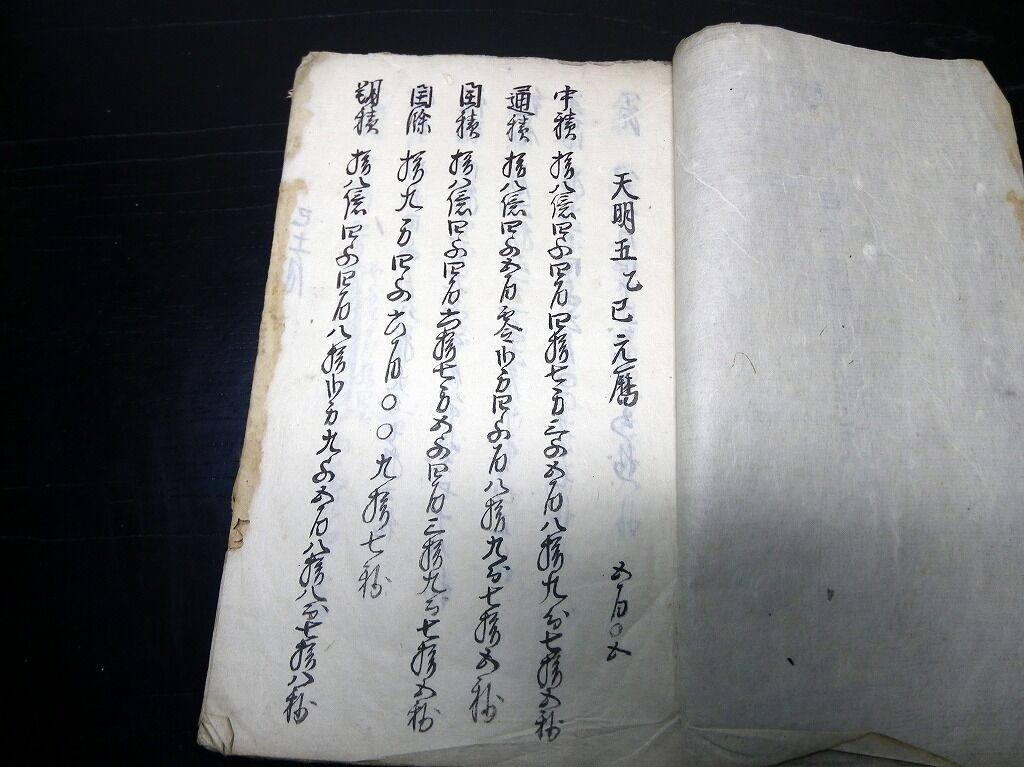 天明五乙巳元暦　五百〇五
中積　拾八億四千四百四拾七万三千五百八拾九分七拾五秒
通積　拾八億四千五百零弐万四千百八拾九分七拾五秒
閏積　拾八億四千四百六拾七万五千四百三拾九分七拾五秒
閏餘　拾九万四千六百〇〇九拾七秒
朔積　拾八億四千四百八拾弐万九千五百八拾八分七拾八秒